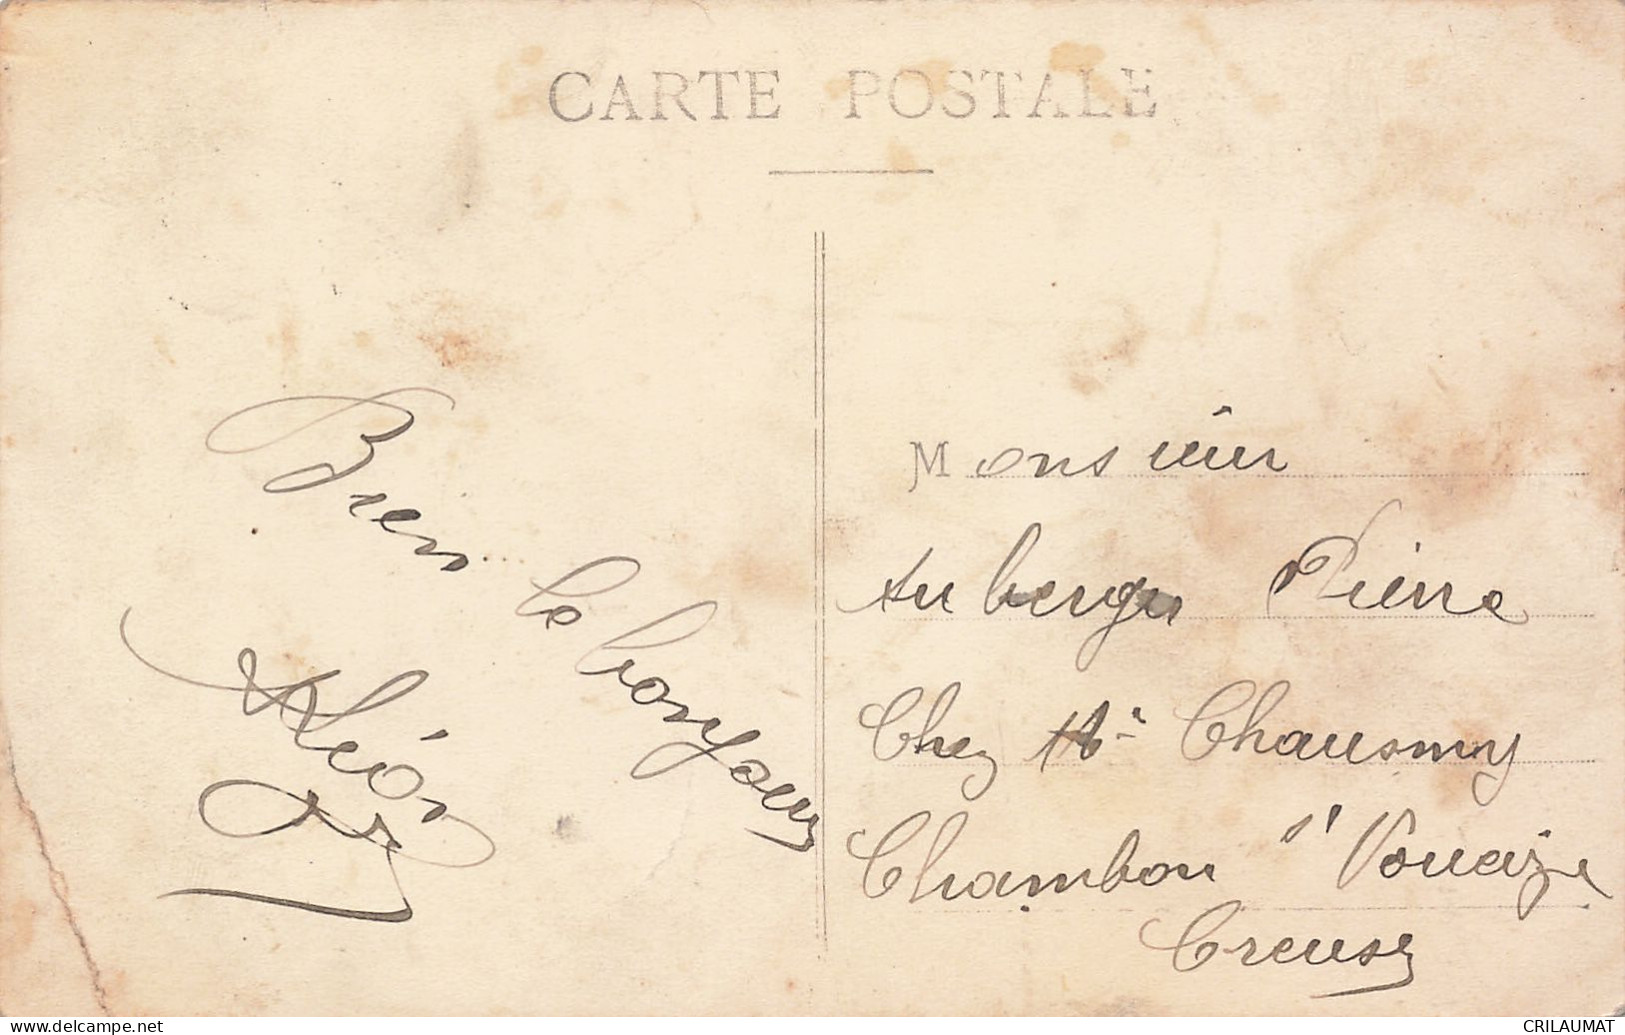 CARTE POSTALE
Bien le bonjour
Léon
Monsieur
Auberger Pierre
Chez Mr Chausmy
Chambon s/ Voueize
Creuse
delcampe.net
CRILAUMAT